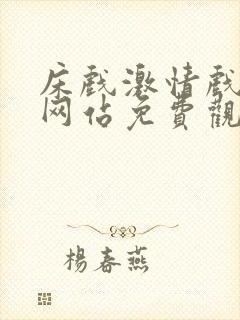 床戲激情戲
网站免費觀
楊春燕